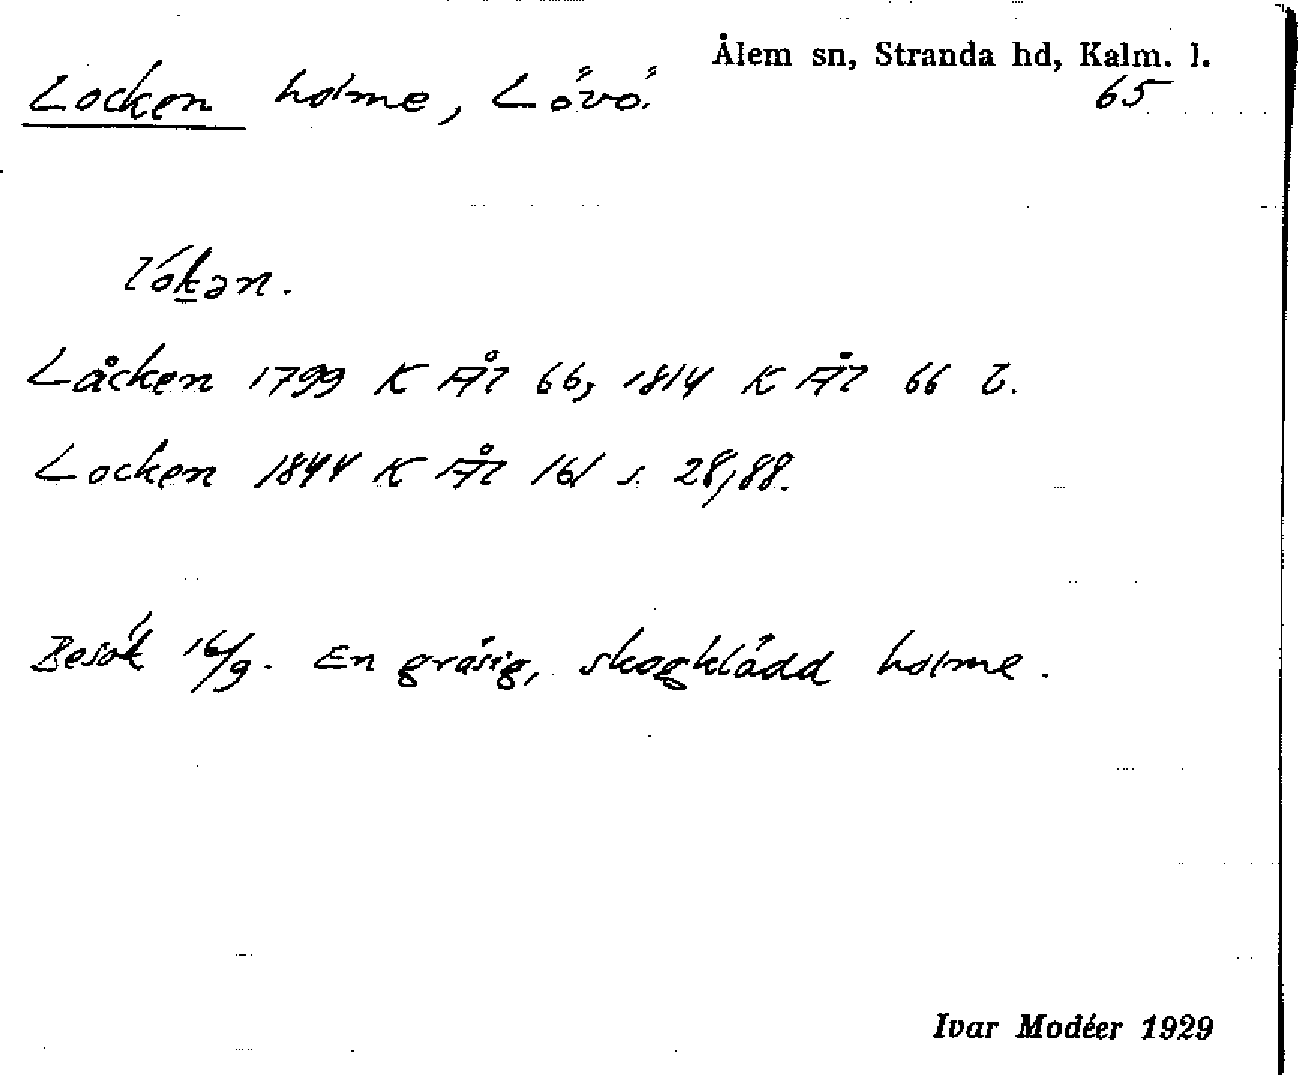 Ålem sn, Stranda hd, Kalm. l.
Locken holme, Lövö. 65
lókən.
Låcken 1799 K Ål 66, 1814 K Ål 66 b.
Locken 1844 K Ål 161 s. 28, 88.
Besök 16/9. En gräsig, skogklädd holme.
Ivar Modéer 1929